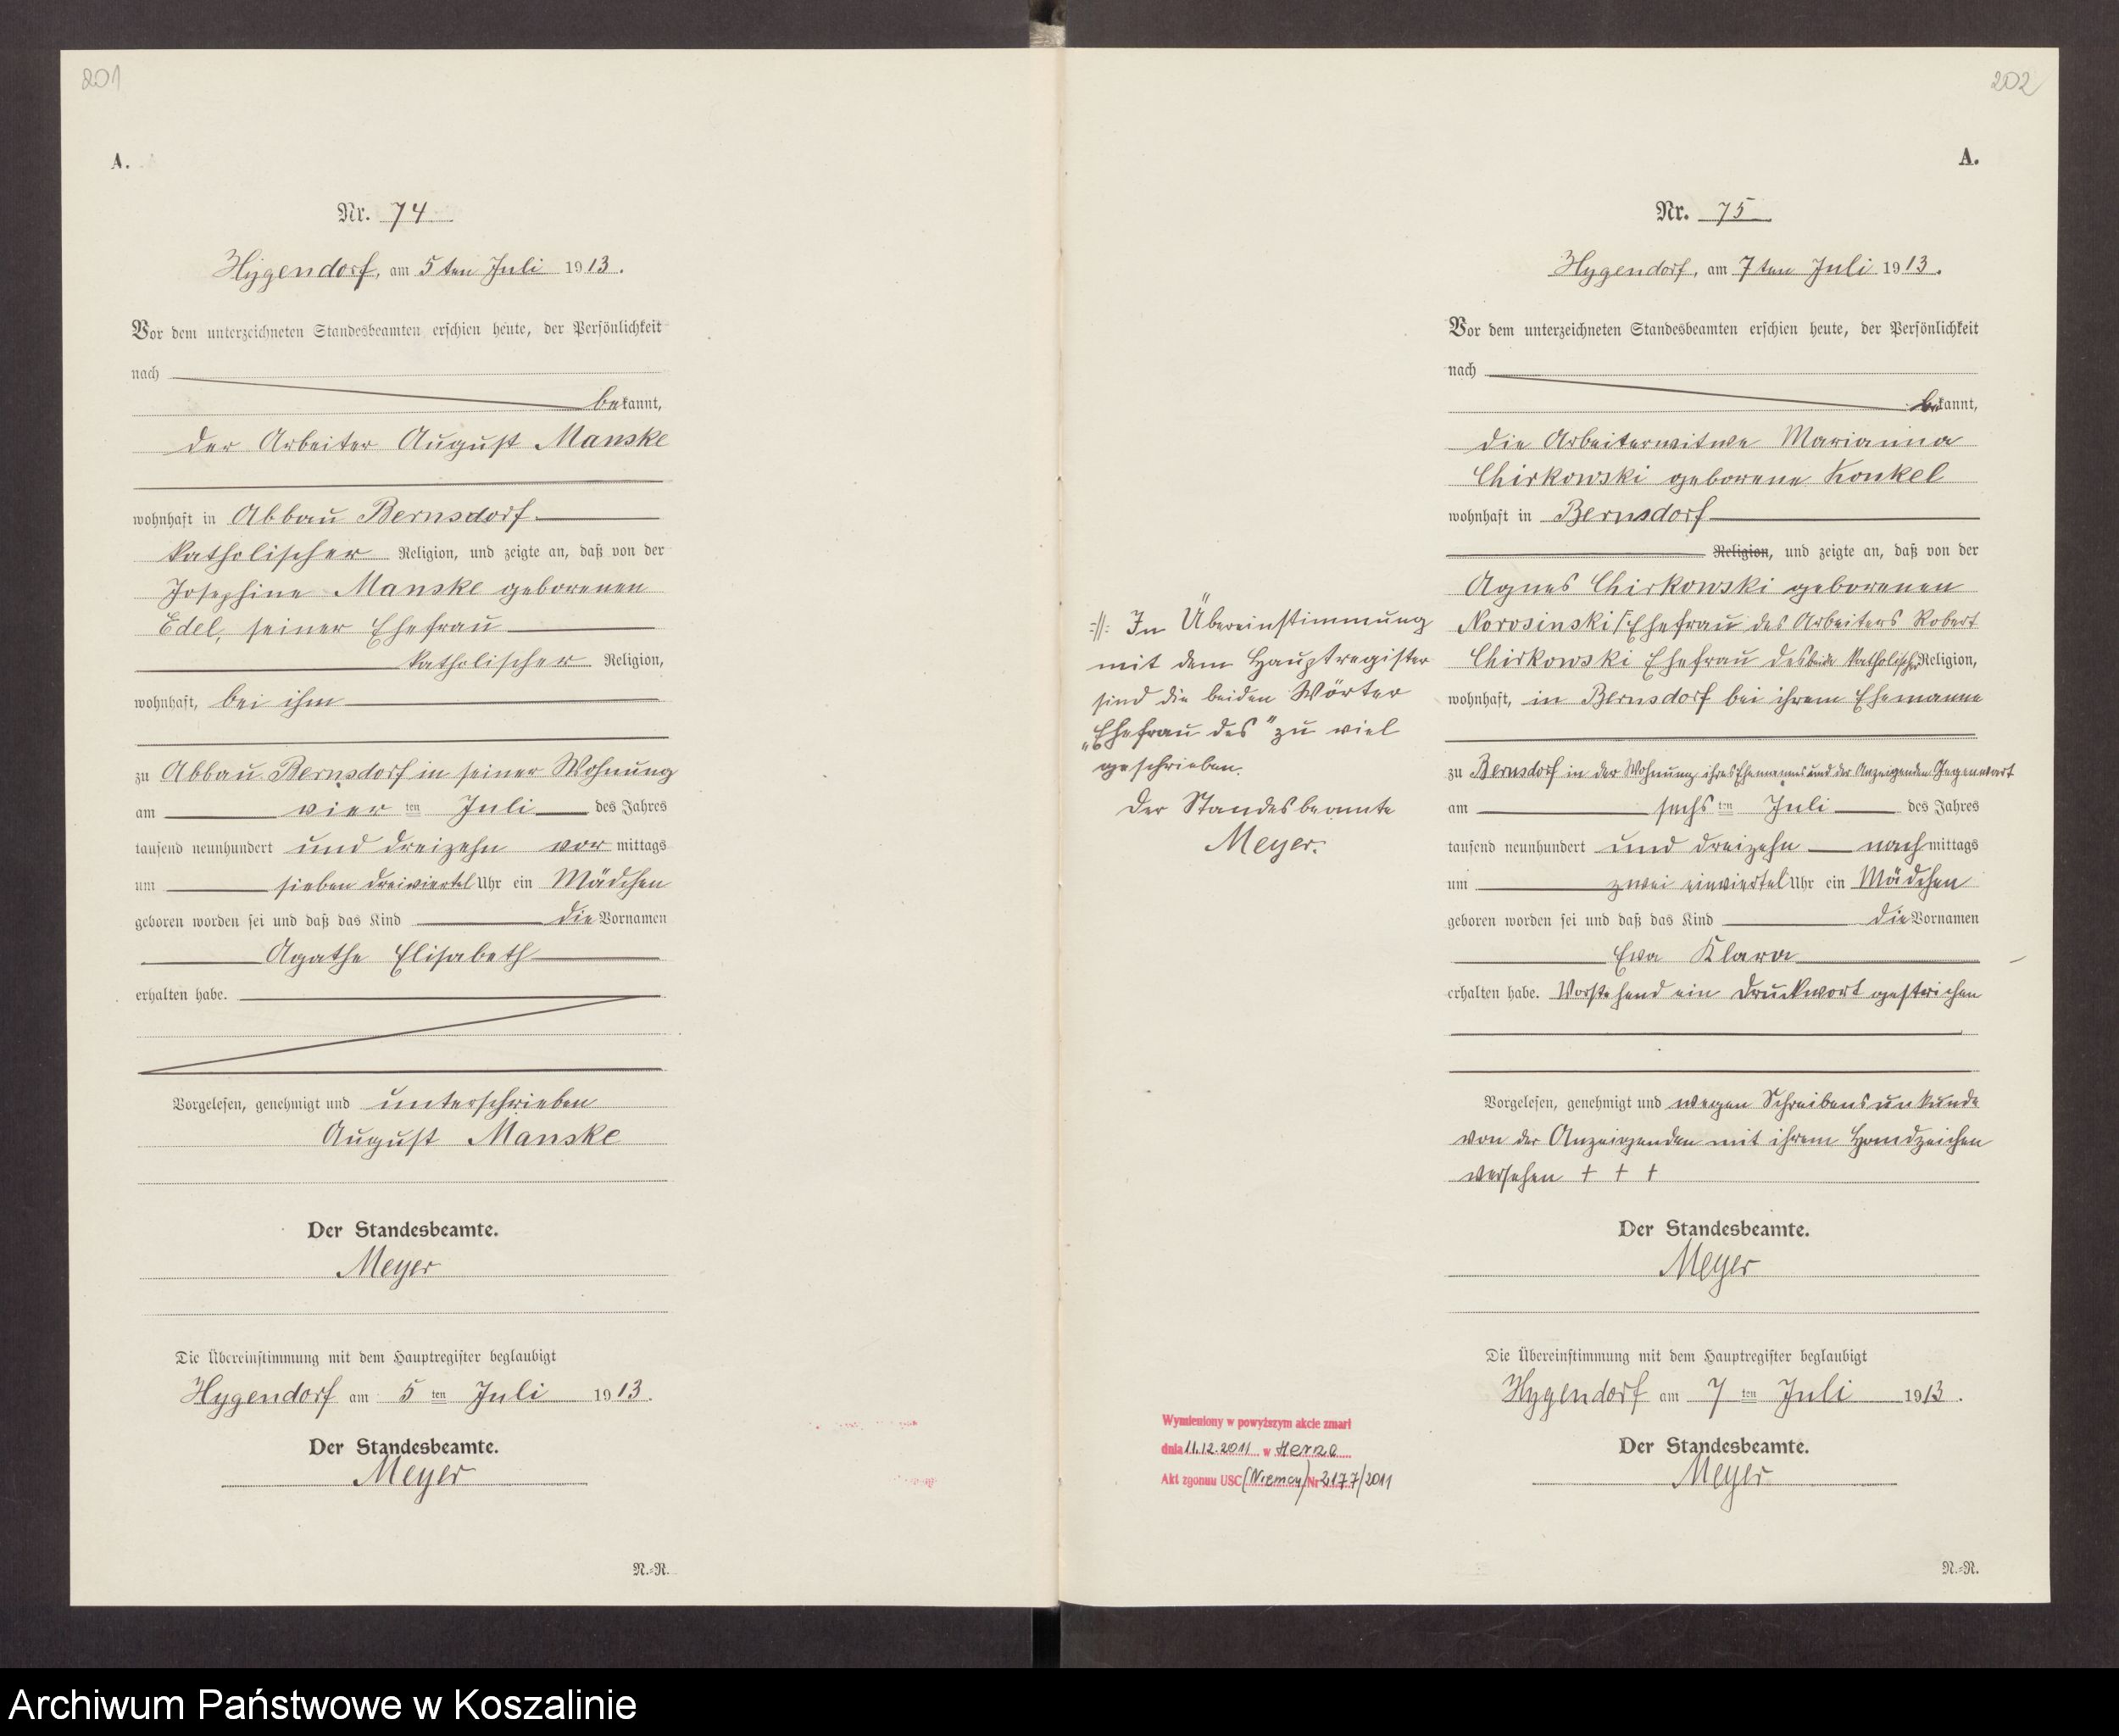 201
A.
Nr. 74
Hygendorf, am 5ten Juli 1913.
Vor dem unterzeichneten Standesbeamten erschien heute, der Persönlichkeit
nach
bekannt,
der Arbeiter August Manske
wohnhaft in Abbau Bernsdorf
katholischer Religion, und zeigte an, daß von der
Josephine Manske geborenen
Edel, seiner Ehefrau
katholischer Religion,
wohnhaft, bei ihm
zu Abbau Bernsdorf in seiner Wohnung
am vier ten Juli des Jahres
tausend neunhundert und dreizehn vor mittags
um sieben dreiviertel Uhr ein Mädchen
geboren worden sei und daß das Kind die Vornamen
Agathe Elisabeth
erhalten habe.
Vorgelesen, genehmigt und unterschrieben
August Manske
Der Standesbeamte.
Meyer
Die Übereinstimmung mit dem Hauptregister beglaubigt
Hygendorf am 5 ten Juli 1913.
Der Standesbeamte.
Meyer
N.=R.
202
A.
Nr. 75
Hygendorf, am 7ten Juli 1913.
Vor dem unterzeichneten Standesbeamten erschien heute, der Persönlichkeit
nach
bekannt,
die Arbeiterwitwe Marianna
Chirkowski geborene Konkel
wohnhaft in Bernsdorf
Religion, und zeigte an, daß von der
Agnes Chirkowski geborenen
Norosinski Ehefrau des Arbeiters Robert
Chirkowski Ehefrau des beide katholisch Religion,
wohnhaft, in Bernsdorf bei ihrem Ehemanne
zu Bernsdorf in der Wohnung ihres Ehemannes und der Anzeigenden Gegenwart
am sechs ten Juli des Jahres
tausend neunhundert und dreizehn nach mittags
um zwei einviertel Uhr ein Mädchen
geboren worden sei und daß das Kind die Vornamen
Eva Klara
erhalten habe. Vorstehend ein Druckwort gestrichen
Vorgelesen, genehmigt und wegen Schreibensunkunde
von der Anzeigenden mit ihrem Handzeichen
versehen + + +
Der Standesbeamte.
Meyer
Die Übereinstimmung mit dem Hauptregister beglaubigt
Hygendorf am 7 ten Juli 1913.
Der Standesbeamte.
Meyer
N.=R.
:||: In Übereinstimmung
mit dem Hauptregister
sind die beiden Wörter
„Ehefrau des" zu viel
geschrieben.
Der Standesbeamte
Meyer.
Wymieniony w powyższym akcie zmarł
dnia 11.12.2011 w Herza
Akt zgonu USC (Niemcy) Nr 2177/2011
Archiwum Państwowe w Koszalinie